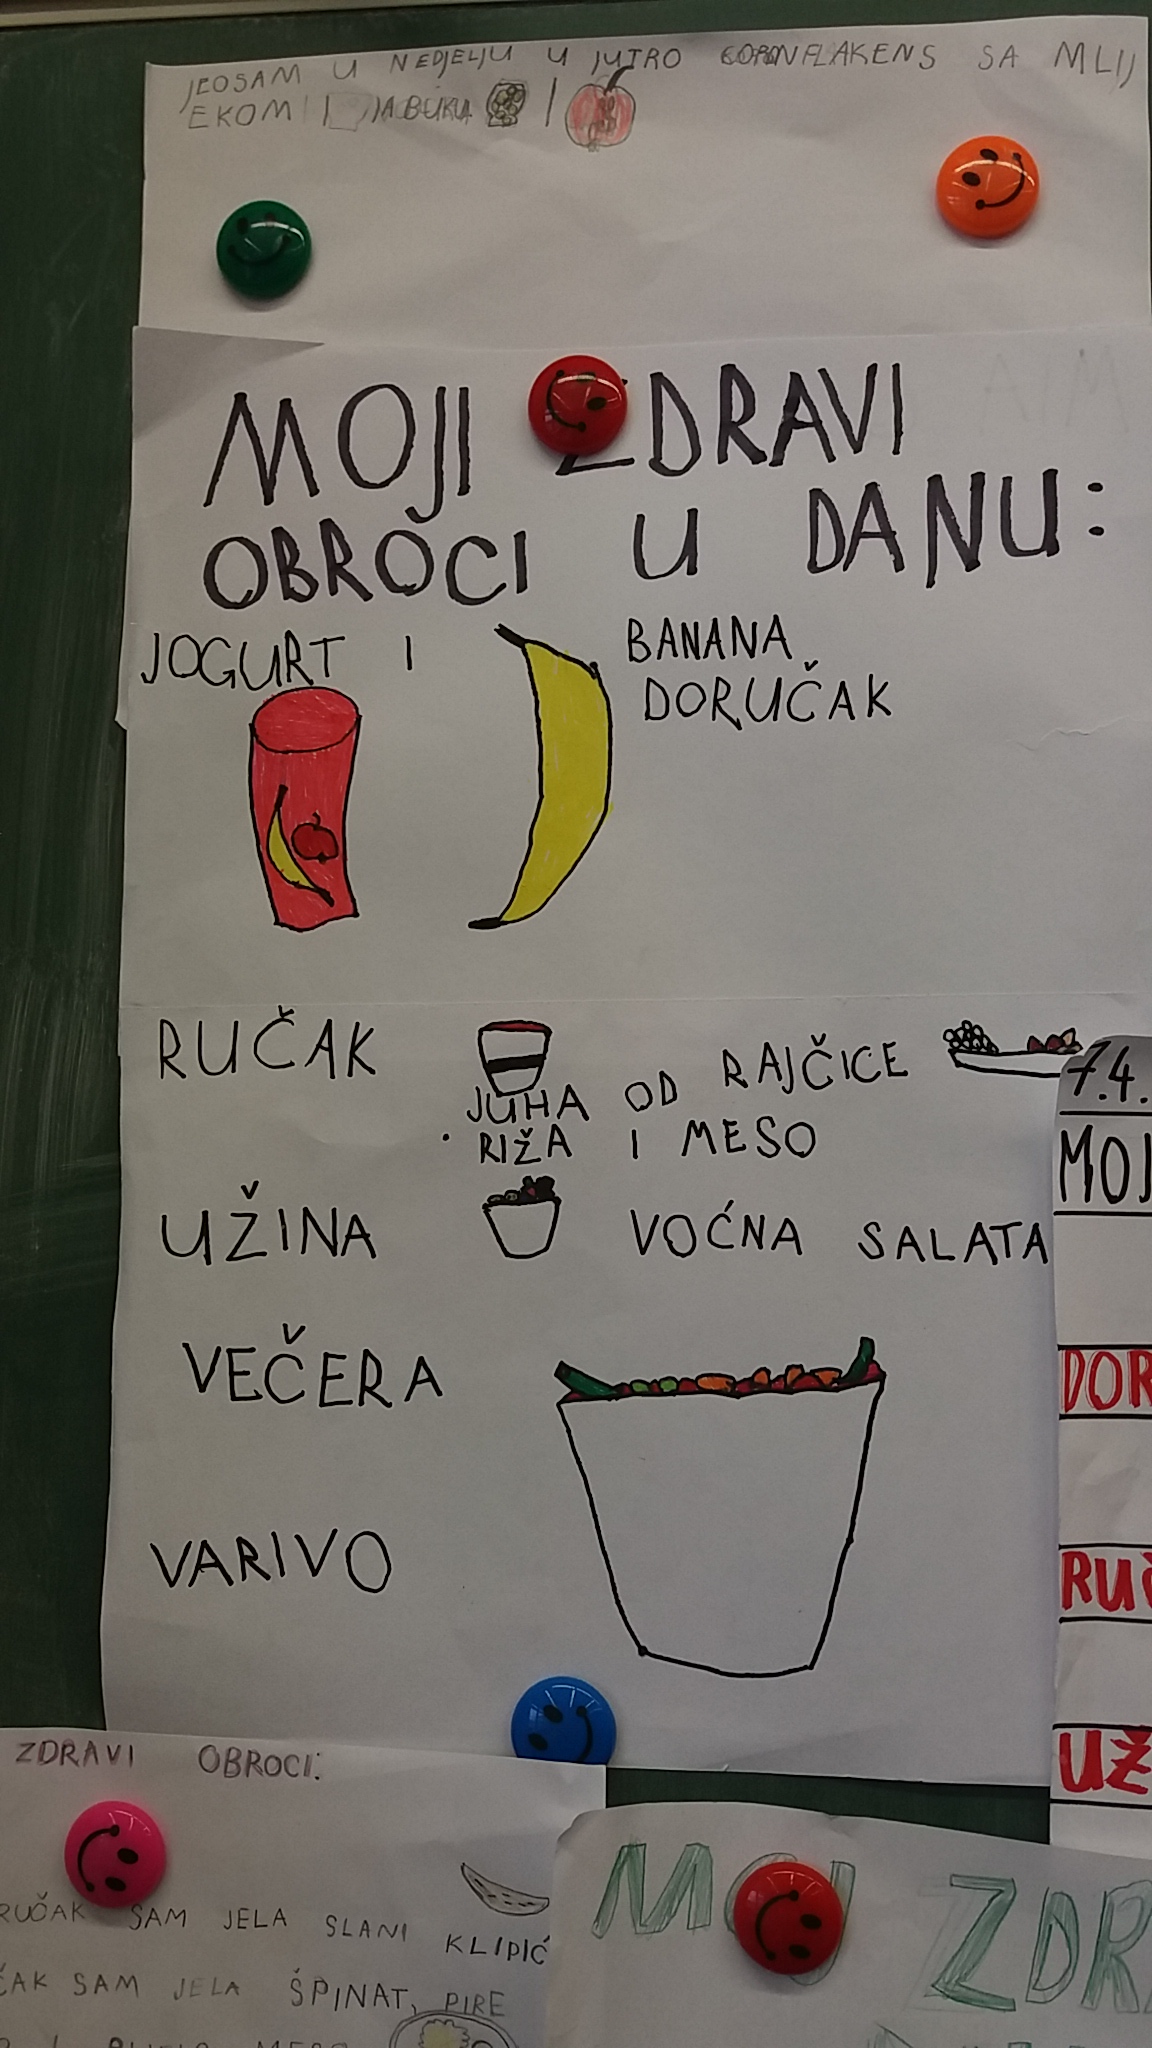 JEOSAM U NEDJELJU U JUTRO CORNFLAKENS SA MLIJ
EKOM I JABUKU I
MOJI ZDRAVI
OBROCI U DANU:
JOGURT I BANANA
DORUČAK
RUČAK
JUHA OD RAJČICE
RIŽA I MESO
UŽINA VOĆNA SALATA
VEČERA
VARIVO
7.4.
MOJ
DOR
RUČ
UŽ
ZDRAVI OBROCI:
RUČAK SAM JELA SLANI KLIPIĆ
ČAK SAM JELA ŠPINAT, PIRE
MOJ ZDR